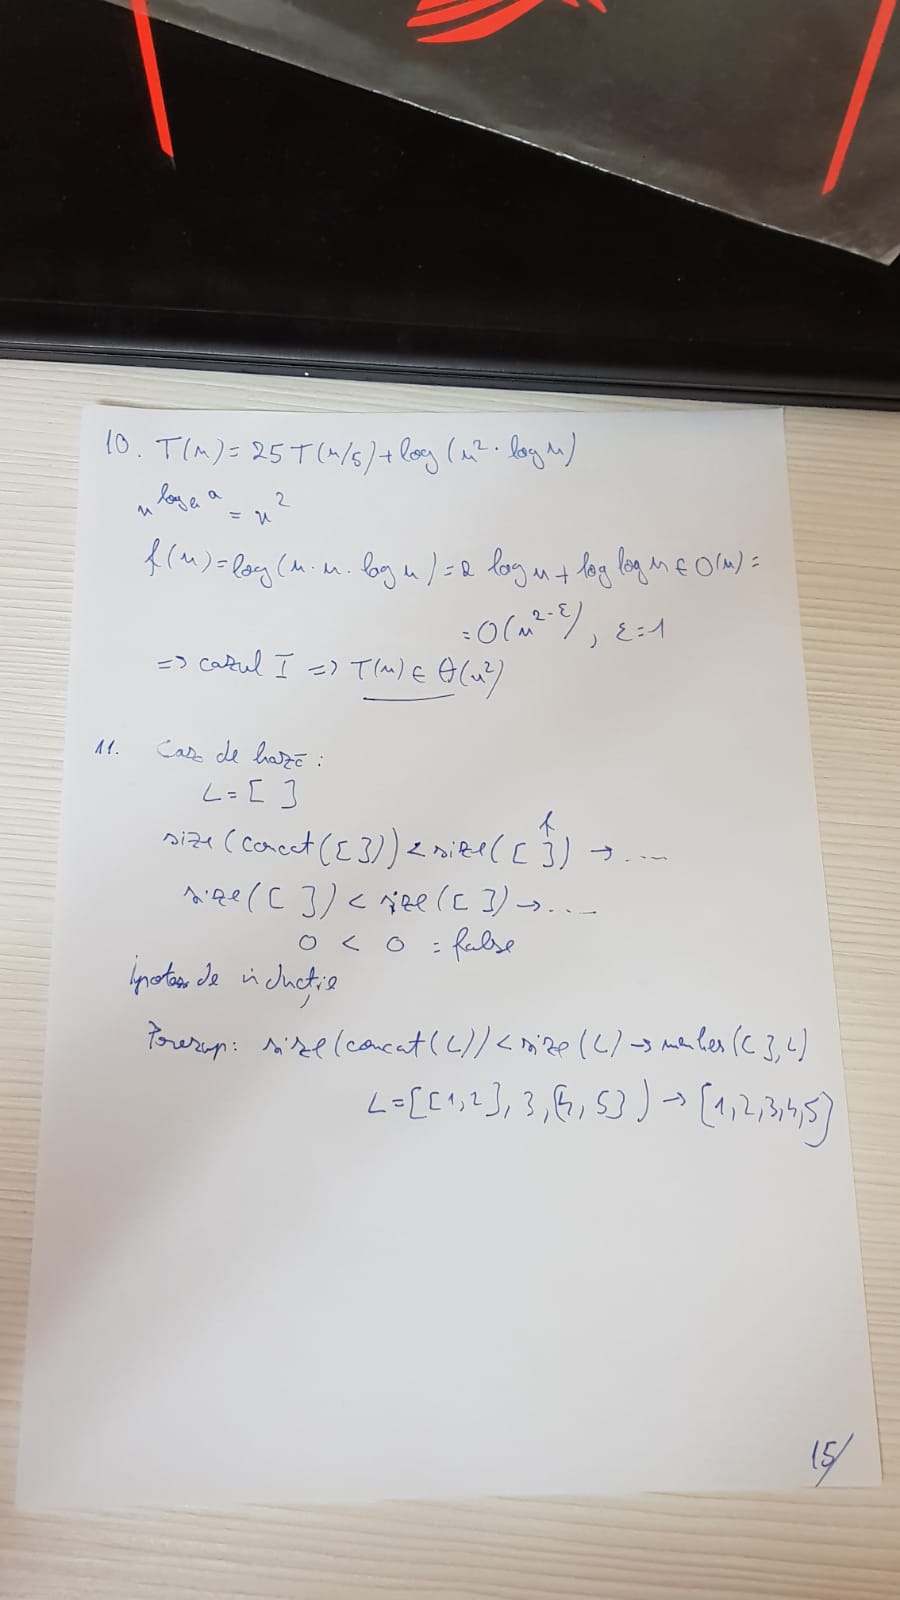 10. T(n) = 25 T(n/5) + log(n² · log n)
n^log_b a = n²
f(n) = log(n · n · log n) = 2 log n + log log n ∈ O(n) =
= O(n^2-ε), ε=1
=> cazul I => T(n) ∈ θ(n²)
11. Caz de bază:
L = [ ]
size(concat([ ])) < size([ ]) → ....
size([ ]) < size([ ]) → ....
0 < 0 = false
Ipoteza de inducție
Presup: size(concat(L)) < size(L) → member([ ], L)
L = [[1,2], 3, [4, 5]] → [1,2,3,4,5]
15/